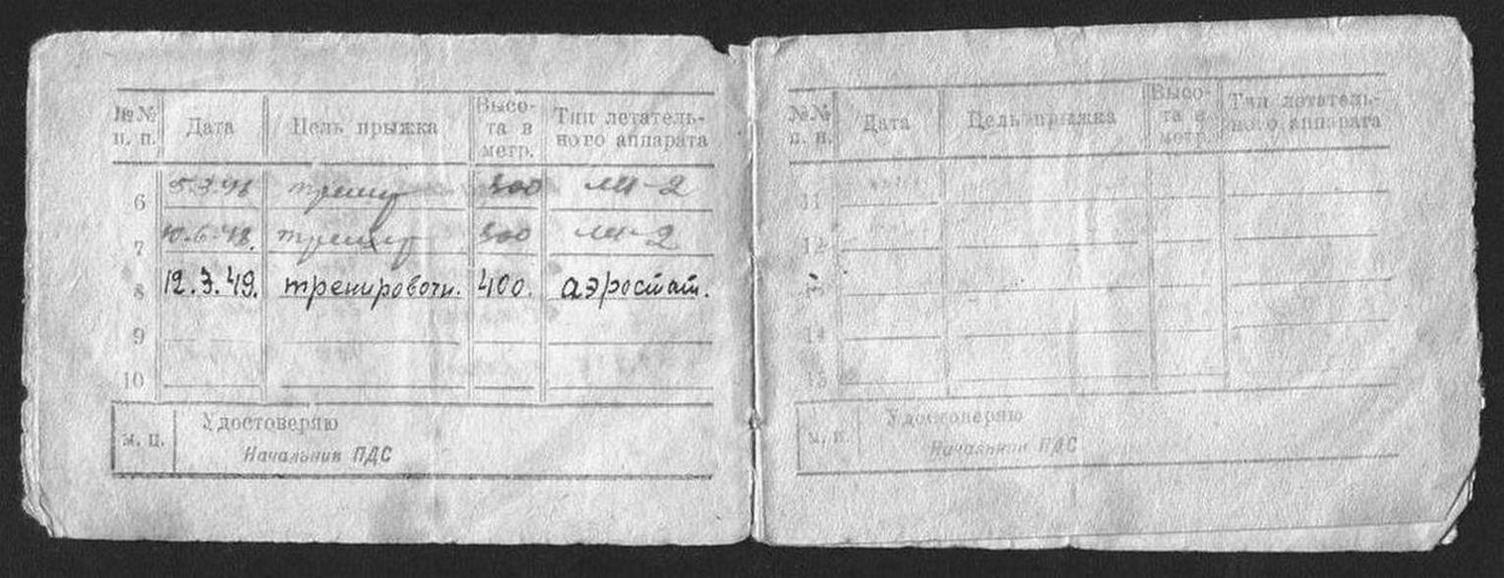 №№ п. п. Дата Цель прыжка Высо- та в метр. Тип летатель- ного аппарата
6 5.3.48 трениr 300 ли-2
7 10.6.48. трениr 300 ли-2
8 12.3.49. тренировочн. 400. аэростат.
9
10
м. п. Удостоверяю
Начальник ПДС
№№ п. п. Дата Цель прыжка Высо- та в метр. Тип летатель- ного аппарата
11
12
14
15
м. п. Удостоверяю
Начальник ПДС